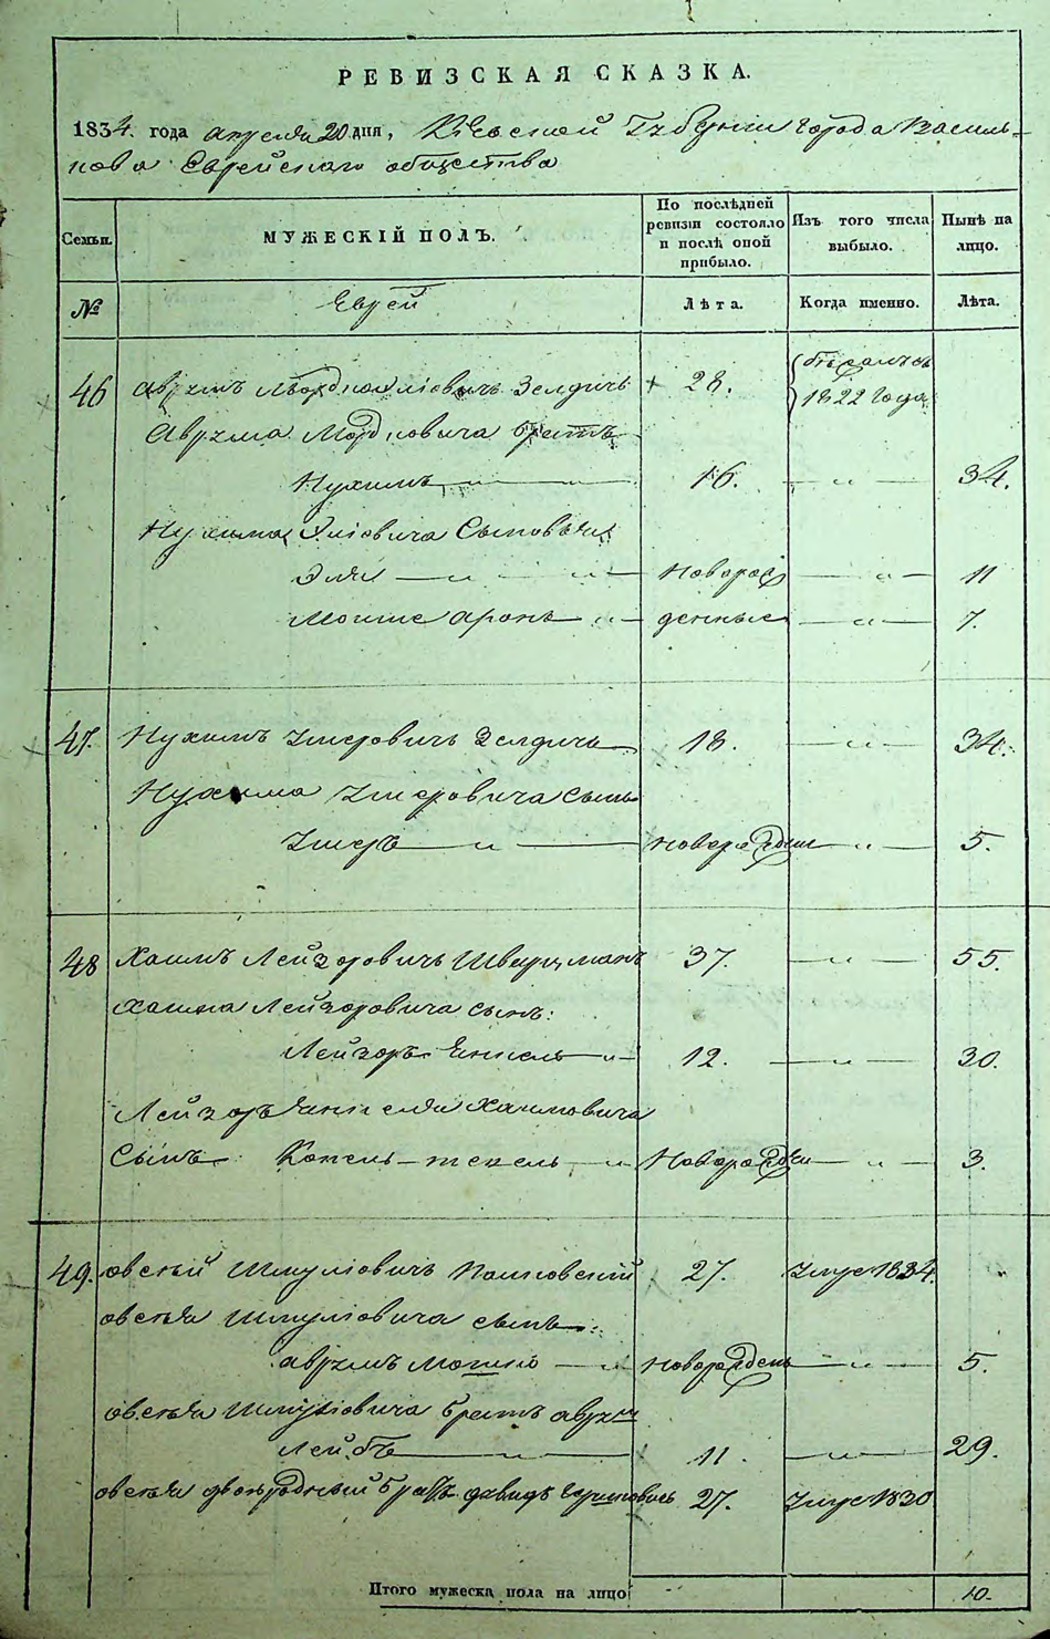 РЕВИЗСКАЯ СКАЗКА.
1834. года апреля 20 дня, Кіевской Губерніи города Василь-
кова Еврейскаго общества
Семьи.
МУЖЕСКІЙ ПОЛЪ.
По послѣдней ревизіи состояло и послѣ оной прибыло.
Изъ того числа выбыло.
Нынѣ на лицо.
№
Еврей
Лѣта.
Когда именно.
Лѣта.
46 Аврумъ Мордко Зелдичъ + 28. 1822 года
Аврума Мордковича братъ
Нухимъ 16. 34.
Нухима Эліовича Сыновья
Эля Новорож 11
Мошке Аронъ денные 7.
47. Нухимъ Умеровичъ Зелдичъ 18. 34.
Нухима Умеровича сынъ
Умеръ новорожден 5.
48 Хаимъ Лейзоровичъ Шварцманъ 37. 55.
Хаима Лейзоровича сынъ:
Лейзоръ Янкель 12. 30.
Лейзоръ Янкеля Хаимовича
Сынъ Копель Новорожден 3.
49. Овсѣй Шмуліовичъ 27. Умре 1834.
Овсѣя Шмуліовича сынъ
Аврумъ Мошко новорожденъ 5.
Овсѣя Шмуліовича братъ Аврум
Лейбъ 11. 29.
Овсѣя двоюродный братъ Давидъ 27. Умре 1830
Итого мужеска пола на лицо 10.